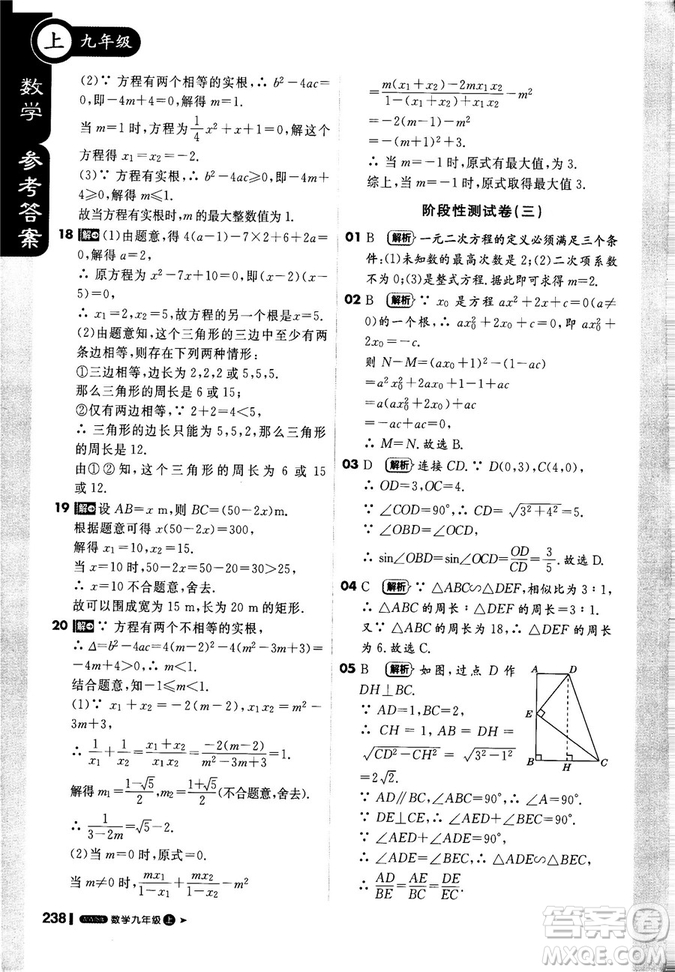 上 九年级
数学 参考答案
(2)∵ 方程有两个相等的实根，∴ b²－4ac＝
0，即－4m＋4＝0，解得 m＝1.
当 m＝1 时，方程为 1/4 x²＋x＋1＝0，解这个
方程得 x₁＝x₂＝－2.
(3)∵ 方程有实根，∴ b²－4ac⩾0，即－4m＋
4⩾0，解得 m⩽1.
故当方程有实根时，m 的最大整数值为 1.
18 解 (1)由题意，得 4(a－1)－7×2＋6＋2a＝
0，解得 a＝2，
∴ 原方程为 x²－7x＋10＝0，即(x－5)(x－
2)＝0，
∴ x₁＝2，x₂＝5，故方程的另一个根是 x＝5.
(2)由题意知，这个三角形的三边中至少有两
条边相等，则存在下列两种情形：
①三边相等，边长为 2，2，2 或 5，5，5.
∴ 三角形的周长是 6 或 15；
②仅有两边相等，∵ 2＋2＝4＜5，
∴ 三角形的边长只能为 5，5，2，那么三角形
的周长是 12.
由①②知，这个三角形的周长是 6 或 15 或
12.
19 解 设 AB＝x m，则 BC＝(50－2x)m.
根据题意可得 x(50－2x)＝300，
解得 x₁＝10，x₂＝15，
当 x＝10 时，50－2x＝30＞25，
∴ x＝10 不合题意，舍去.
故可以围成宽为 15 m，长为 20 m 的矩形.
20 解 ∵ 方程有两个不相等的实根，
∴ Δ＝b²－4ac＝4(m－2)²－4(m²－3m＋3)＝
－4m＋4＞0，∴ m＜1.
结合题意知，－1⩽m＜1.
(1)∵ x₁＋x₂＝－2(m－2)，x₁x₂＝m²－
3m＋3，
∴ 1/x₁＋1/x₂＝(x₁＋x₂)/(x₁x₂)＝－2(m－2)/(m²－3m＋3)＝1，
解得 m₁＝(1－√5)/2，m₂＝(1＋√5)/2(不合题意，舍去)，
∴ 1/(3－2m)＝√5－2.
(2)当 m＝0 时，原式＝0.
当 m≠0 时，mx₁/(1－x₁)＋mx₂/(1－x₂)－m²
＝[m(x₁＋x₂)－2mx₁x₂]/[1－(x₁＋x₂)＋x₁x₂]－m²
＝－2(m－1)－m²
＝－(m＋1)²＋3.
∴ 当 m＝－1 时，原式有最大值，为 3.
综上，当 m＝－1 时，原式有最大值 3.
阶段性测试卷(三)
01 B 解析 一元二次方程的定义必须满足三个条
件：(1)未知数的最高次数是 2；(2)二次项系数
不为 0；(3)是整式方程. 故选 B.
02 B 解析 ∵ x₀ 是方程 ax²＋2x＋c＝0(a≠
0)的一个根，∴ ax₀²＋2x₀＋c＝0，即 ax₀²＋
2x₀＝－c.
则 N－M＝(ax₀＋1)²－(1－ac)
＝a²x₀²＋2ax₀＋1－1＋ac
＝a(ax₀²＋2x₀)＋ac
＝－ac＋ac＝0，
∴ M＝N. 故选 B.
03 D 解析 连接 CD. ∵ D(0，3)，C(4，0)，
∴ OD＝3，OC＝4.
∵ ∠COD＝90°，∴ CD＝√(3²＋4²)＝5.
∵ ∠OBD＝∠OCD，
∴ sin∠OBD＝sin∠OCD＝OD/CD＝3/5. 故选 D.
04 C 解析 ∵ △ABC∽△DEF，相似比为 3∶1，
∴ △ABC 的周长∶△DEF 的周长＝3∶1.
又∵ △ABC 的周长为 18，∴ △DEF 的周长
为 6. 故选 C.
05 B 解析 如图，过点 D 作
DH⊥BC.
∵ AD＝1，BC＝2，
∴ CH ＝ 1，DH ＝
√(CD²－CH²)＝√(3²－1²)
＝2√2.
A D E B H C
∵ AD∥BC，∠ABC＝90°，∴ ∠A＝90°.
∵ DE⊥CE，∴ ∠AED＋∠BEC＝90°.
∵ ∠AED＋∠ADE＝90°，
∴ ∠ADE＝∠BEC，∴ △ADE∽△BEC，
∴ AD/BE＝AE/BC＝DE/CE.
238 数学九年级 上
答案圈
MXQE.COM